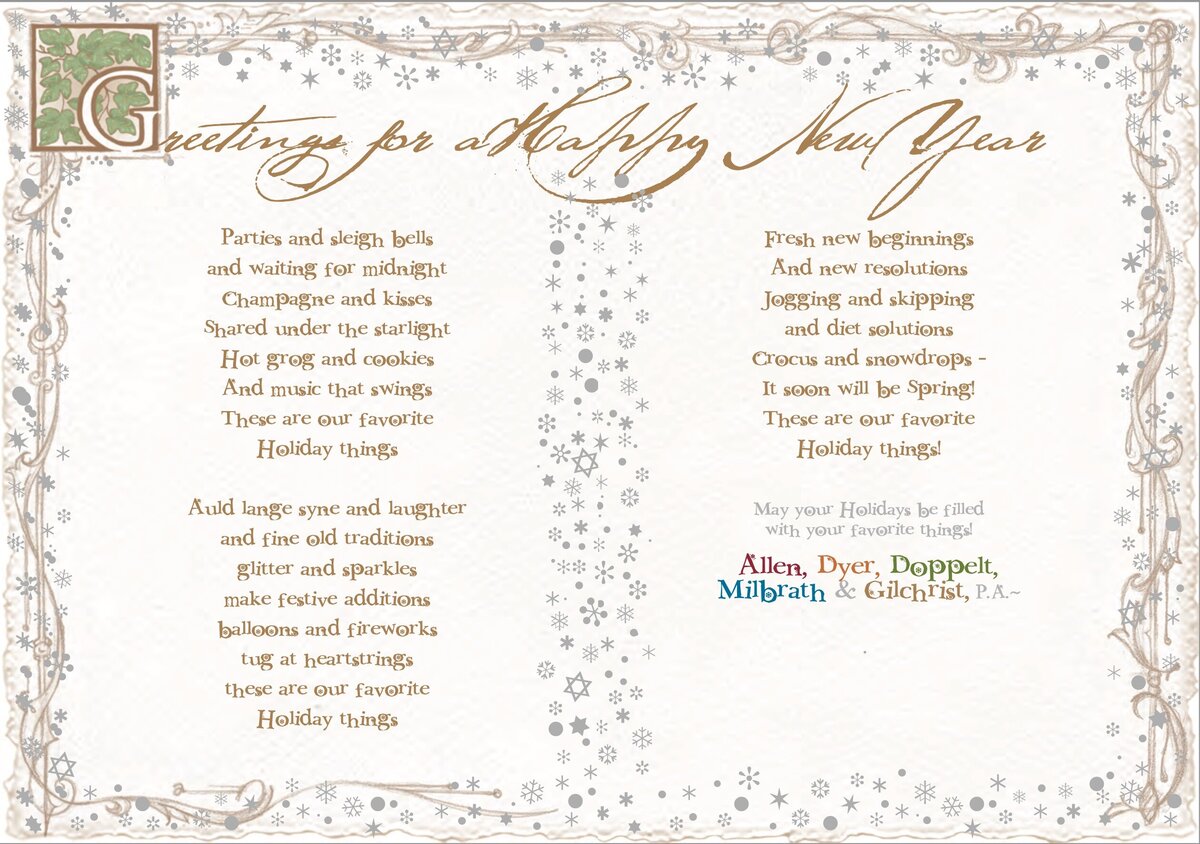 Greetings for a Happy New Year
Parties and sleigh bells
and waiting for midnight
Champagne and kisses
Shared under the starlight
Hot grog and cookies
And music that swings
These are our favorite
Holiday things
Auld lange syne and laughter
and fine old traditions
glitter and sparkles
make festive additions
balloons and fireworks
tug at heartstrings
these are our favorite
Holiday things
Fresh new beginnings
And new resolutions
Jogging and skipping
and diet solutions
Crocus and snowdrops -
It soon will be Spring!
These are our favorite
Holiday things!
May your Holidays be filled
with your favorite things!
Allen, Dyer, Doppelt,
Milbrath & Gilchrist, P.A.~